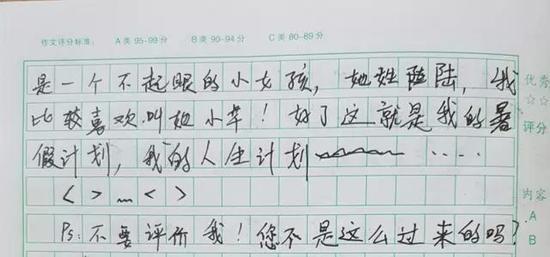 作文评分标准: A类 95-99分 B类 90-94分 C类 80-89分
是一个不起眼的小女孩，她姓陆，我
比较喜欢叫她小草！好了这就是我的暑
假计划，我的人生计划 ....
<>...<>
Ps:不要评价我！您不是这么过来的吗?
优秀
☆☆
评分
内容
A
B